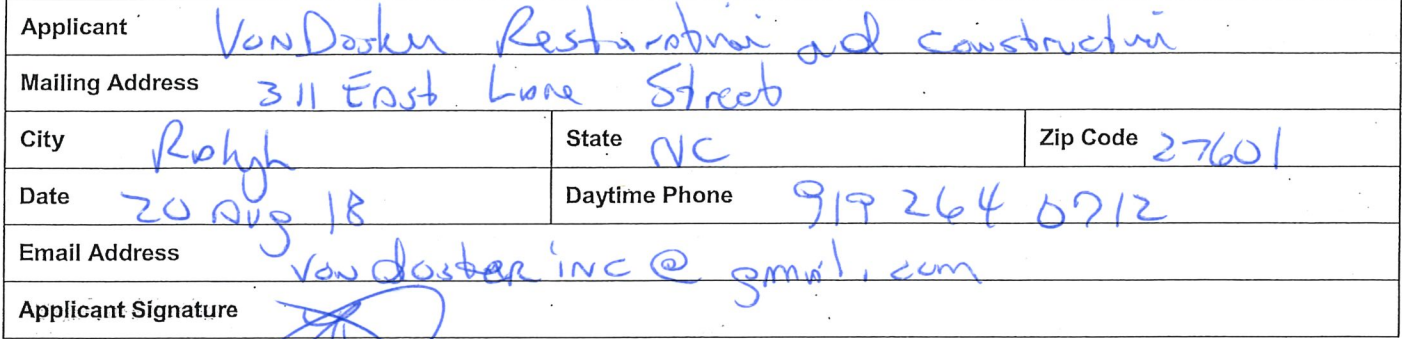 Applicant VonDoster Restoration and Construction
Mailing Address 311 East Lane Street
City Raleigh State NC Zip Code 27601
Date 20 Aug 18 Daytime Phone 919 264 0712
Email Address vondosterinc@gmail.com
Applicant Signature